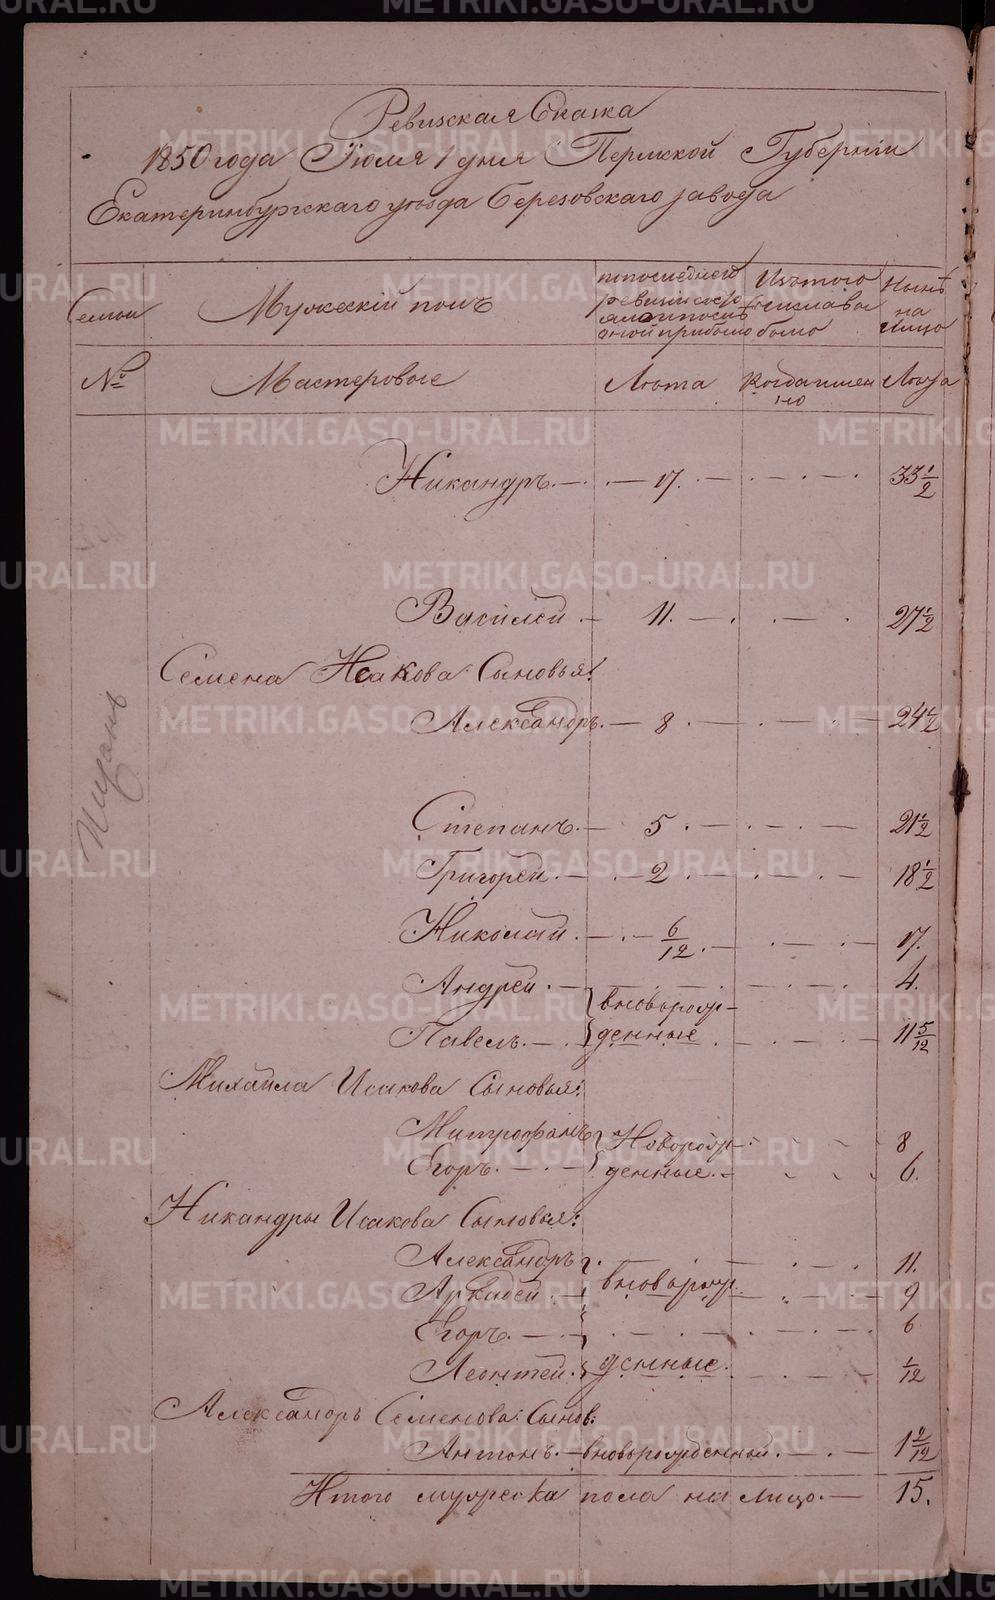 Ревизская Сказка
1850 года Июля 1 дня Пермской Губернiи
Екатеринбургскаго уѣзда Березовскаго завода
Семьи
Мужескiй полъ
По последней ревизiи состояло и после оной прибыло
Изъ того числа выбыло
Нынѣ на лицо
№
Мастеровые
Лѣта
Когда имен но
Лѣта
Никандръ. — 17. — 33 1/2
Василей — 11. — 27 1/2
Семена Исакова Сыновья:
Александръ. — 8 — 24 1/2
Степанъ. — 5 — 21 1/2
Григорей. — 2 — 18 1/2
Николай. — 6/12. — 17.
Андрей. — вновьрож- 4.
Павелъ. — денные 11 5/12
Михайла Исакова Сыновья:
Митрофанъ Новорож- 8
Егоръ. — денные. — 6.
Никандры Исакова Сыновья:
Александръ 11.
Аркадей. — вновьрож 9
Егоръ. — 6
Леонтей. денные. 1/12
Александръ Семенова: Сынов:
Антонъ. — вновьрожденной. — 1 2/12
Итого мужеска пола на лицо. — 15.
METRIKI.GASO-URAL.RU